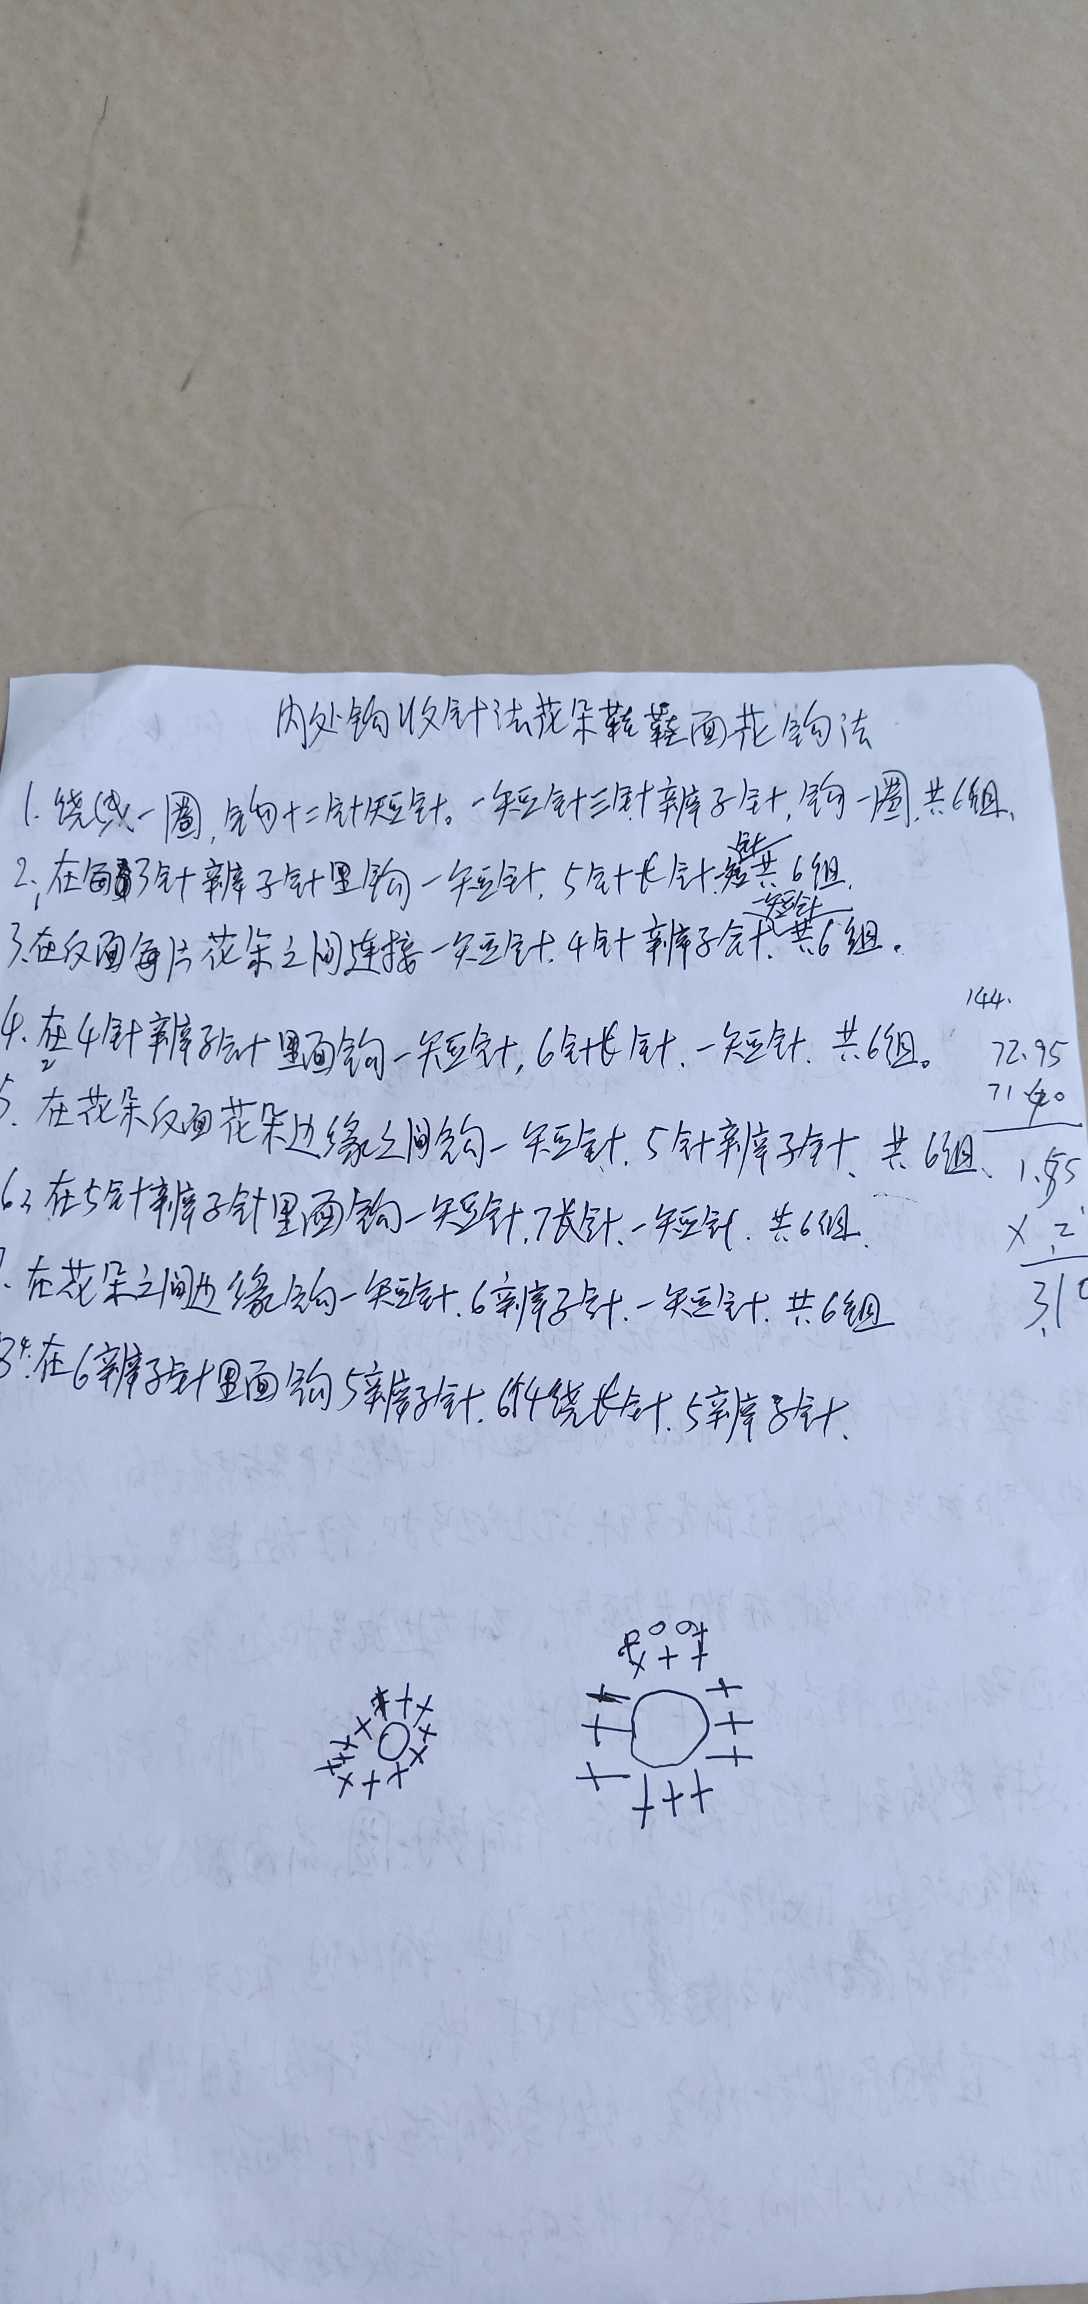 内处钩收针法花朵鞋鞋面花钩法
1. 绕线一圈,钩十二针短针。一短针三针辫子针,钩一圈,共6组、
2、在每3针辫子针里钩一短针,5针长针、一短针共6组,
3、在反面每片花朵之间连接一短针、4针辫子针、一短针、共6组。
4、在4针辫子针里面钩一短针,6针长针、一短针、共6组。
5、在花朵反面花朵边缘之间钩一短针、5针辫子针、共6组、
6、在5针辫子针里面钩一短针,7长针、一短针、共6组、
、在花朵之间边缘钩一短针、6辫子针、一短针、共6组
8、在6辫子针里面钩5辫子针、6个4绕长针、5辫子针、
144.
72.95
71.40
1.55
× 2
3.10